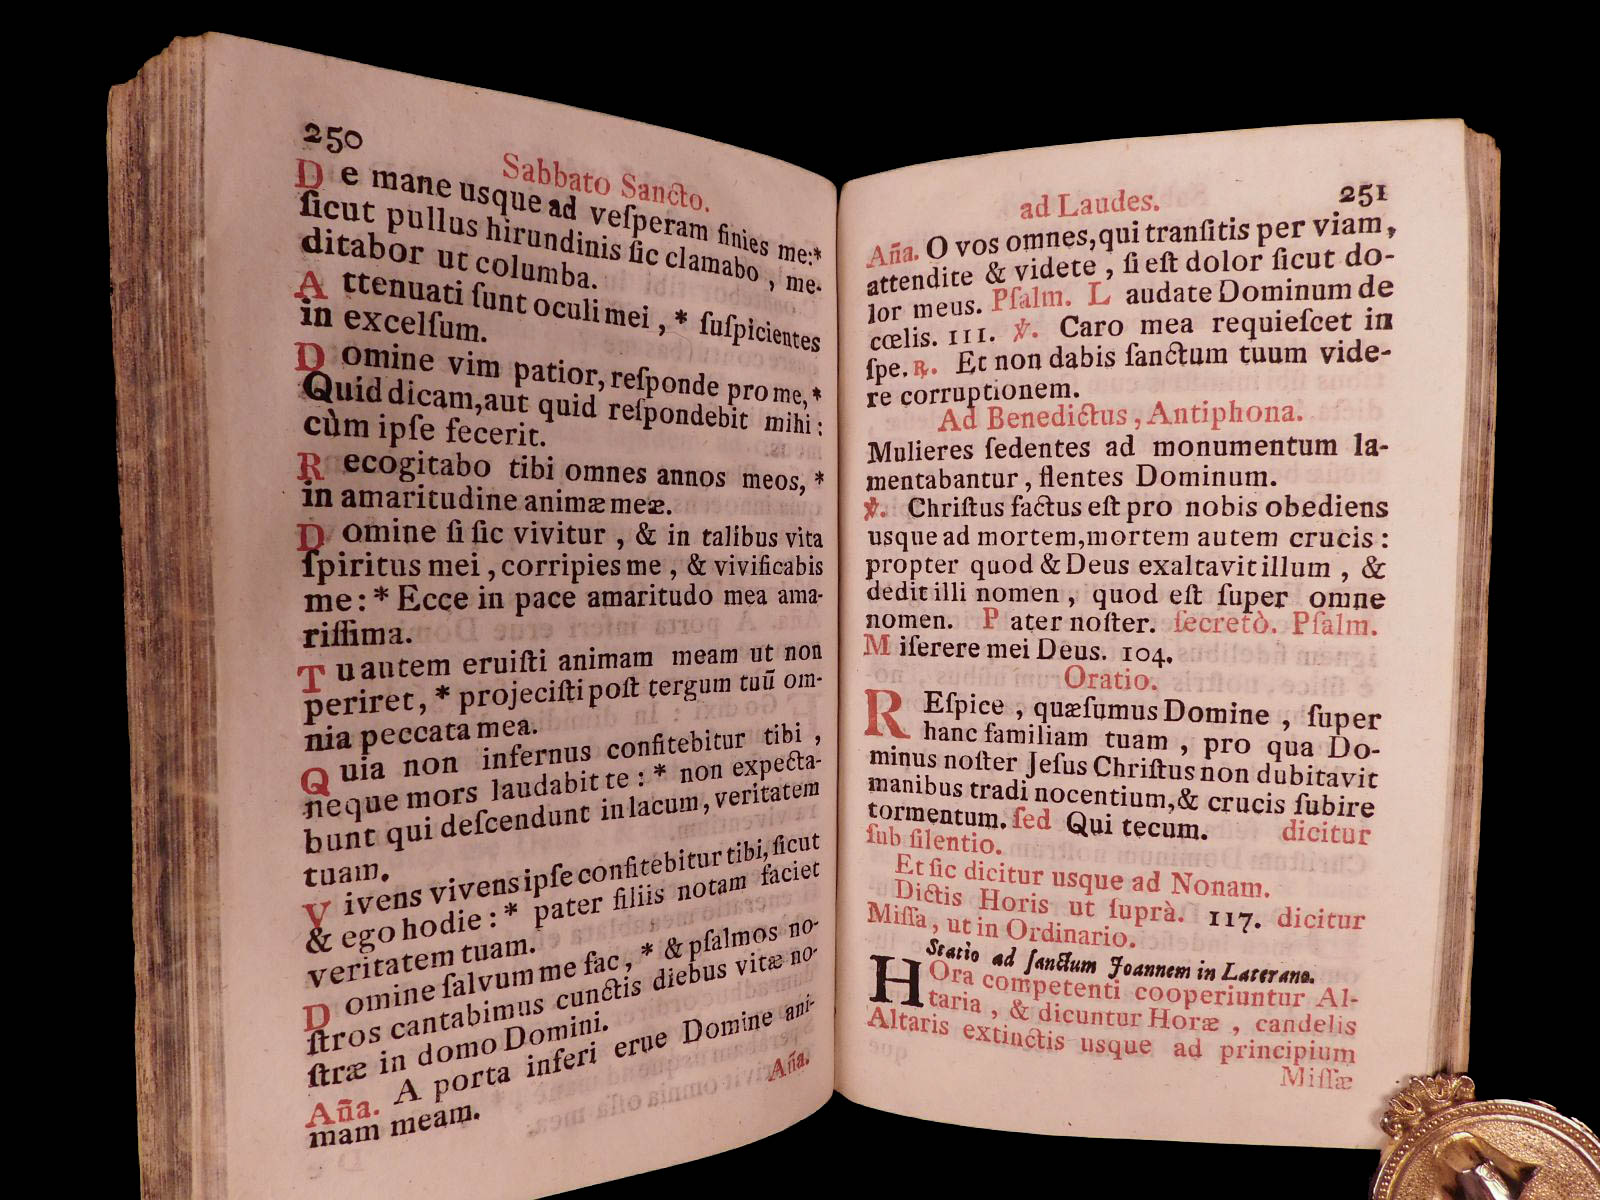 250
Sabbato Sancto.
De mane usque ad veſperam finies me:*
ſicut pullus hirundinis ſic clamabo, me-
ditabor ut columba.
Attenuati ſunt oculi mei, * ſuſpicientes
in excelſum.
Domine vim patior, reſponde pro me, *
Quid dicam, aut quid reſpondebit mihi:
cùm ipſe fecerit.
Recogitabo tibi omnes annos meos, *
in amaritudine animæ meæ.
Domine ſi ſic vivitur, & in talibus vita
ſpiritus mei, corripies me, & vivificabis
me: * Ecce in pace amaritudo mea ama-
riſſima.
Tu autem eruiſti animam meam ut non
periret, * projeciſti poſt tergum tuū om-
nia peccata mea.
Quia non infernus confitebitur tibi,
neque mors laudabit te: * non expecta-
bunt qui deſcendunt in lacum, veritatem
tuam.
Vivens vivens ipſe confitebitur tibi, ſicut
& ego hodie: * pater filiis notam faciet
veritatem tuam.
Domine ſalvum me fac, * & pſalmos no-
ſtros cantabimus cunctis diebus vitæ no-
ſtræ in domo Domini.
Aña. A porta inferi erue Domine ani-
mam meam.
Aña.
ad Laudes.
251
Aña. O vos omnes, qui tranſitis per viam,
attendite & videte, ſi eſt dolor ſicut do-
lor meus. Pſalm. Laudate Dominum de
cœlis. 111. ℣. Caro mea requieſcet in
ſpe. ℟. Et non dabis ſanctum tuum vide-
re corruptionem.
Ad Benedictus, Antiphona.
Mulieres ſedentes ad monumentum la-
mentabantur, flentes Dominum.
℣. Chriſtus factus eſt pro nobis obediens
usque ad mortem, mortem autem crucis:
propter quod & Deus exaltavit illum, &
dedit illi nomen, quod eſt ſuper omne
nomen. Pater noſter. ſecretò. Pſalm.
Miſerere mei Deus. 104.
Oratio.
REſpice, quæſumus Domine, ſuper
hanc familiam tuam, pro qua Do-
minus noſter Jeſus Chriſtus non dubitavit
manibus tradi nocentium, & crucis ſubire
tormentum. ſed Qui tecum. dicitur
ſub ſilentio.
Et ſic dicitur usque ad Nonam.
Dictis Horis ut ſuprà. 117. dicitur
Miſſa, ut in Ordinario.
Statio ad ſanctum Joannem in Laterano.
HOra competenti cooperiuntur Al-
taria, & dicuntur Horæ, candelis
Altaris extinctis usque ad principium
Miſſæ